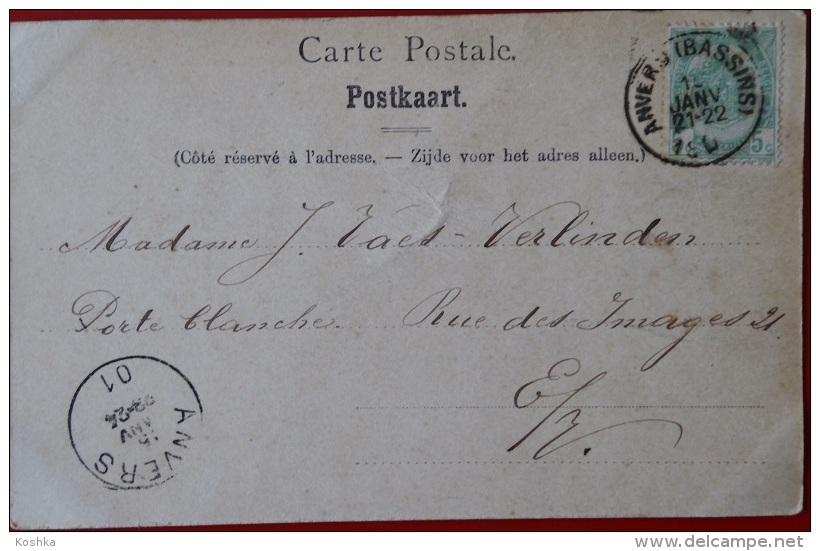 Carte Postale.
Postkaart.
(Côté réservé à l'adresse. — Zijde voor het adres alleen.)
ANVERS (BASSINS)
15
JANV
21-22
5c
Madame J. Vaes-Verlinden
Porte blanche. Rue des Images 21.
E/V.
ANVERS
15
JANV
01
Koshka
delcampe.net